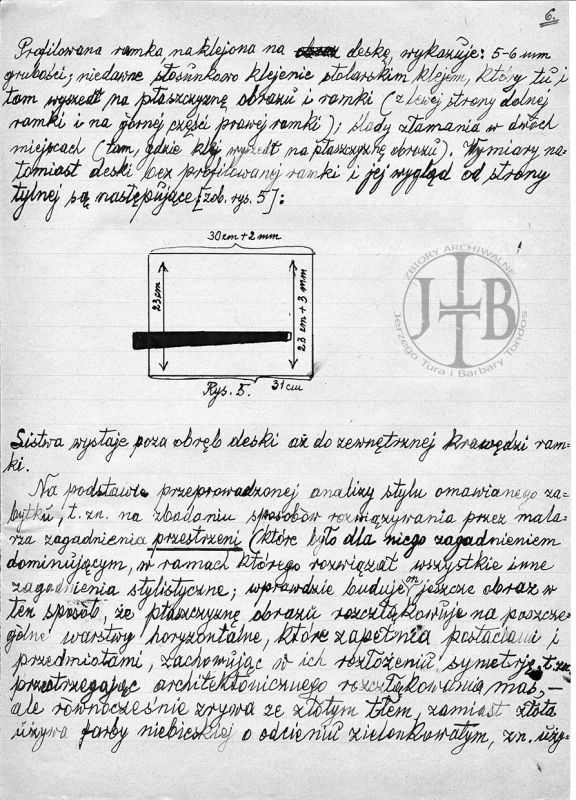 6.
Profilowana ramka naklejona na obraz deskę, wykazuje: 5-6 mm
grubości; niedawne stosunkowo klejenie stolarskim klejem, który tu i
tam wyszedł na płaszczyznę obrazu i ramki (z lewej strony dolnej
ramki i na górnej części prawej ramki); ślady złamania w dwóch
miejscach (tam, gdzie klej wyszedł na płaszczyznę obrazu). Wymiary na-
tomiast deski bez profilowanej ramki i jej wygląd od strony
tylnej są następujące [zob. rys. 5]:
30 cm + 2 mm
23 cm
23 cm + 3 mm
31 cm
Rys. 5.
ZBIORY ARCHIWALNE
JTB
Jerzego Tura i Barbary Tondos
Listwa wystaje poza obręb deski aż do zewnętrznej krawędzi ram-
ki.
Na podstawie przeprowadzonej analizy stylu omawianego za-
bytku, t. zn. na zbadaniu sposobów rozwiązywania przez mala-
rza zagadnienia przestrzeni (które było dla niego zagadnieniem
dominującym, w ramach którego rozwiązał wszystkie inne
zagadnienia stylistyczne; wprawdzie buduje on jeszcze obraz w
ten sposób, że płaszczyznę obrazu rozczłonkowuje na poszcze-
gólne warstwy horyzontalne, które zapełnia postaciami i
przedmiotami, zachowując w ich rozłożeniu symetrję, t. zn.
przestrzegając architektonicznego rozczłonkowania mas, –
ale równocześnie zrywa ze złotym tłem, zamiast złota
używa farby niebieskiej o odcieniu zielonkowatym, zn. uży-